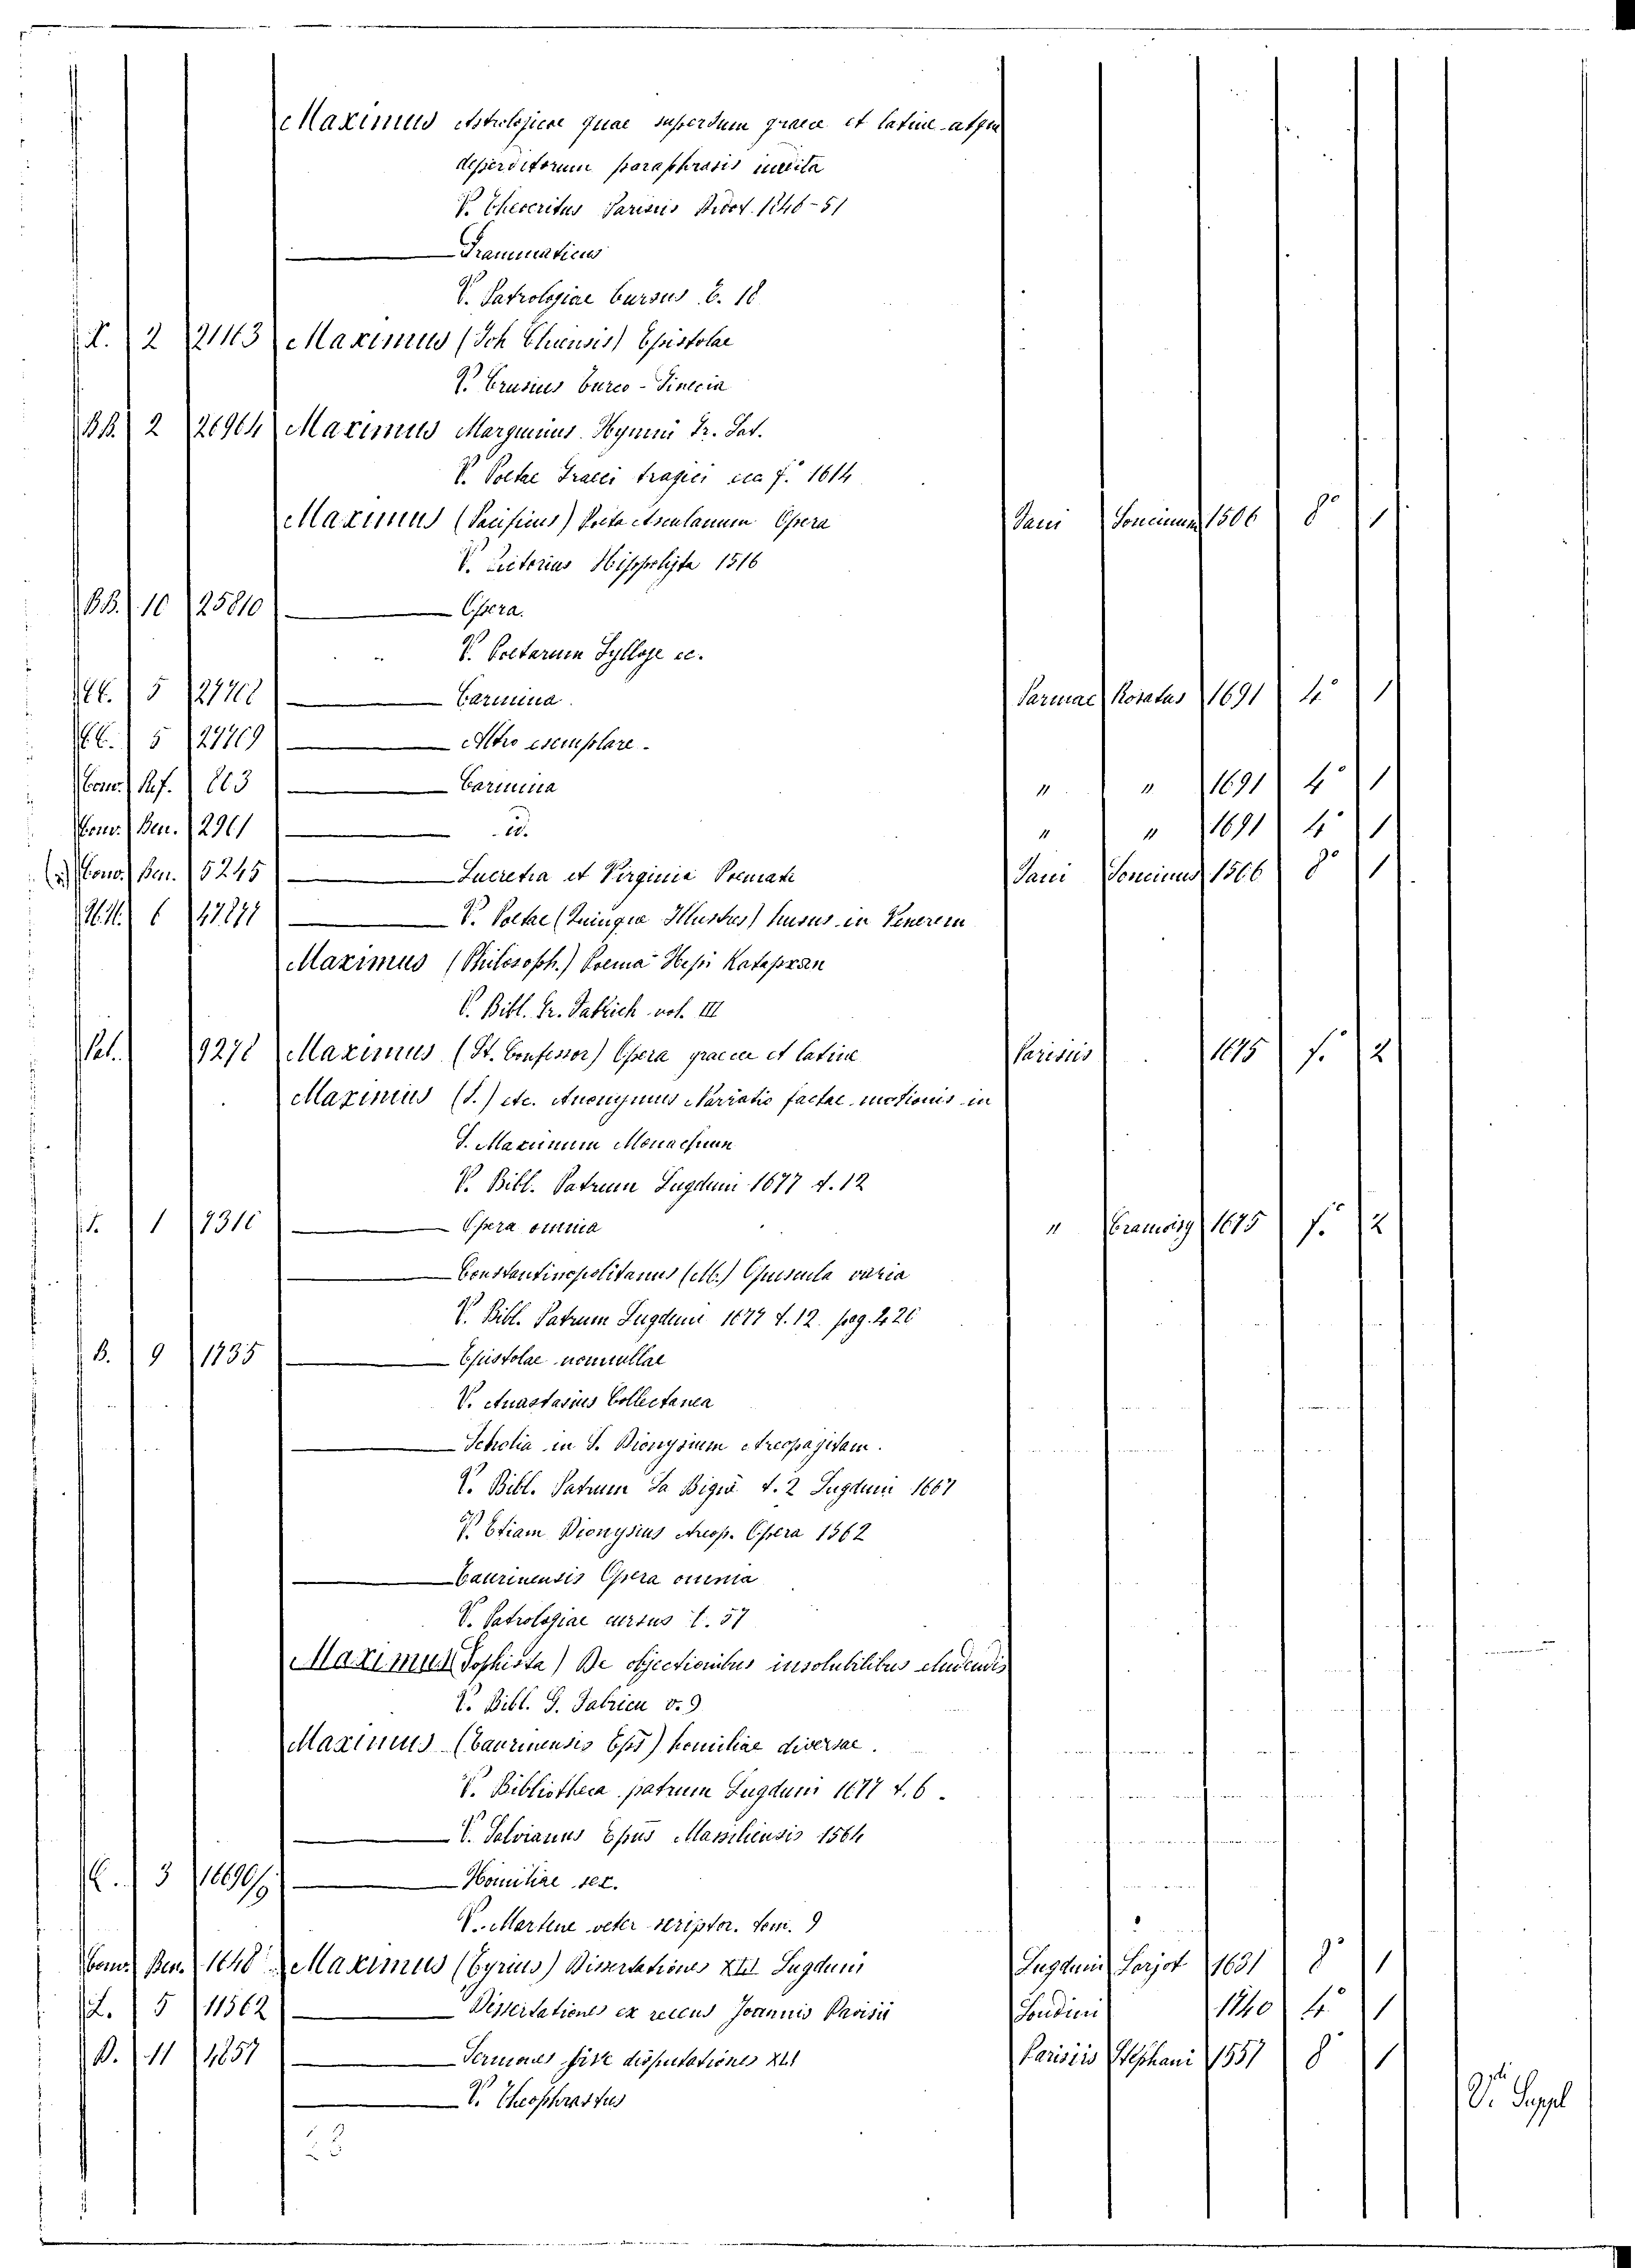 Maximus Astrologicae quae supersum graece et latine atque
deperditorum paraphrasis inedita
V. Theocritus Parisiis Didot. 1846-51
Grammaticus
V. Patrologiae Cursus t. 18
T. 2 21163 Maximus (Joh Chiensis) Epistolae
V. Crusius Turco-Graecia
BB. 2 26964 Maximus Margunius Hymni Gr. Lat.
V. Poetae Graeci tragici f.° 1614
Maximus (Pacificus) Poeta Asculanum Opera Fani Soncinum 1506 8° 1
V. Hippolyta 1516
BB. 10 25810 Opera.
V. Poetarum Sylloge ec.
5 Carmina. Parmae Rosatus 1691 4° 1
5 Altro esemplare.
Conv. Rf. Carmina " " 1691 4° 1
Conv. Ben. 2961 id. " " 1691 4° 1
Conv. Ben. 5245 Lucretia et Virginia Poemata Fani Soncinus 1506 8° 1
6 V. Poetae (Quinque Illustres) lusus in Venerem
Maximus (Philosoph.) Poema
V. Bibl. Gr. Fabrich vol. III
Pat. 9278 Maximus (St. Confessor) Opera graece et latine Parisiis 1675 f.° 2
Maximus (S.) etc. Anonymus Narratio factae motionis in
S. Maximum Monachum
V. Bibl. Patrum Lugduni 1677 t. 12
1 Opera omnia " Cramoisy 1675 f.° 2
Constantinopolitanus (M.) Opuscula varia
V. Bibl. Patrum Lugduni 1677 t. 12. pag. 426
B. 9 1735 Epistolae nonnullae
V. Anastasius Collectanea
Scholia in S. Dionysium Areopagitam.
V. Bibl. Patrum La Bigne t. 2 Lugduni 1667
V. Etiam Dionysius Areop. Opera 1562
Taurinensis Opera omnia
V. Patrologiae cursus t. 57
Maximus Sophista) De objectionibus insolubilibus eludendis
V. Bibl. G. Fabricii v. 9
Maximus (Taurinensis Eps) homiliae diversae.
V. Bibliotheca patrum Lugduni 1677 t. 6.
V. Salvianus Epus Massiliensis 1564
3 16690/9 Homiliae sex.
V. Martene veter scriptor. tom. 9
Conv. Ben. 1648 Maximus (Tyrius) Dissertationes XLI Lugduni Lugduni Larjot 1631 8° 1
L. 5 11562 Dissertationes ex recens Joannis Davisii Londini 1740 4° 1
B. 11 4857 Sermones sive disputationes XLI Parisiis Stephani 1557 8° 1
V. Theophrastus
V. Suppl